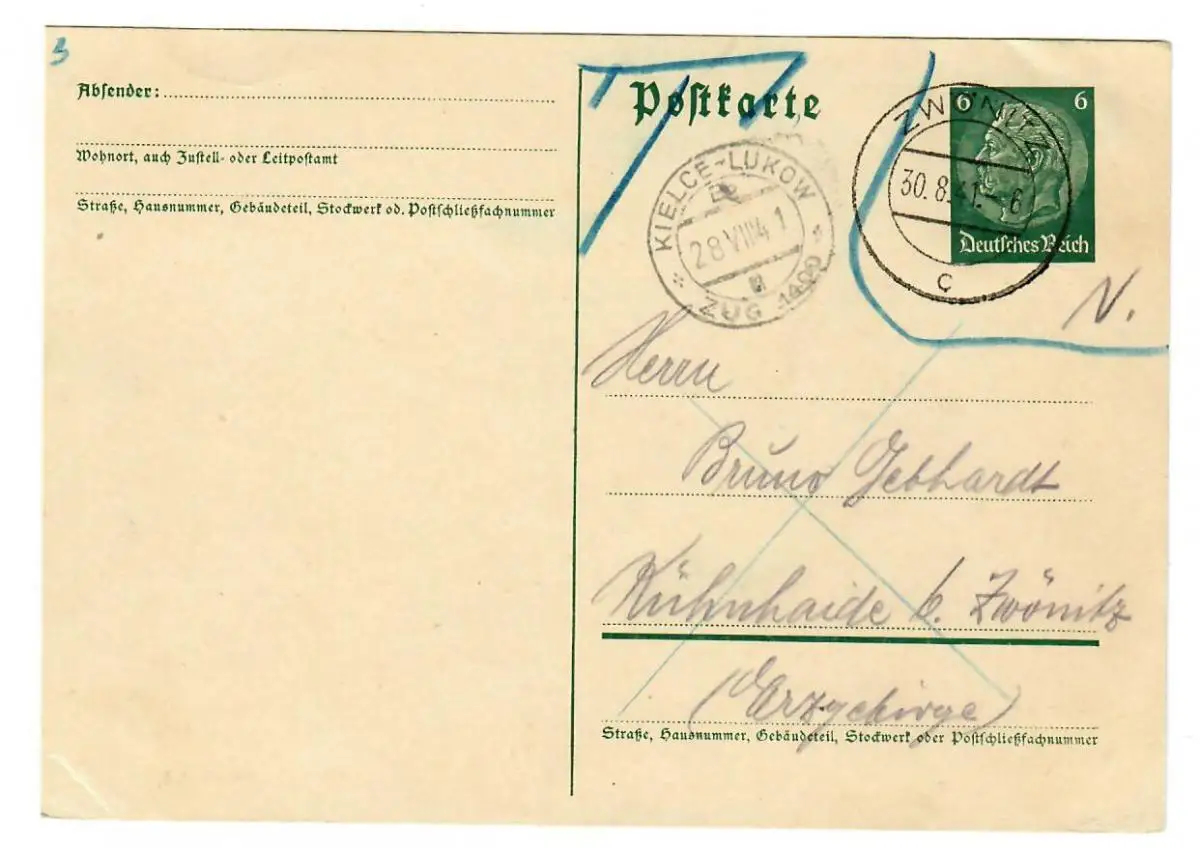 3
Absender:
Wohnort, auch Zustell- oder Leitpostamt
Straße, Hausnummer, Gebäudeteil, Stockwerk od. Postschließfachnummer
Postkarte
KIELCE-LUKOW
28 VIII 41
ZUG 1400
ZWÖNITZ
30.8.41.-6
c
6 6
Deutsches Reich
N.
Herrn
Bruno Gebhardt
Kühnhaide b. Zwönitz
(Erzgebirge)
Straße, Hausnummer, Gebäudeteil, Stockwerk oder Postschließfachnummer